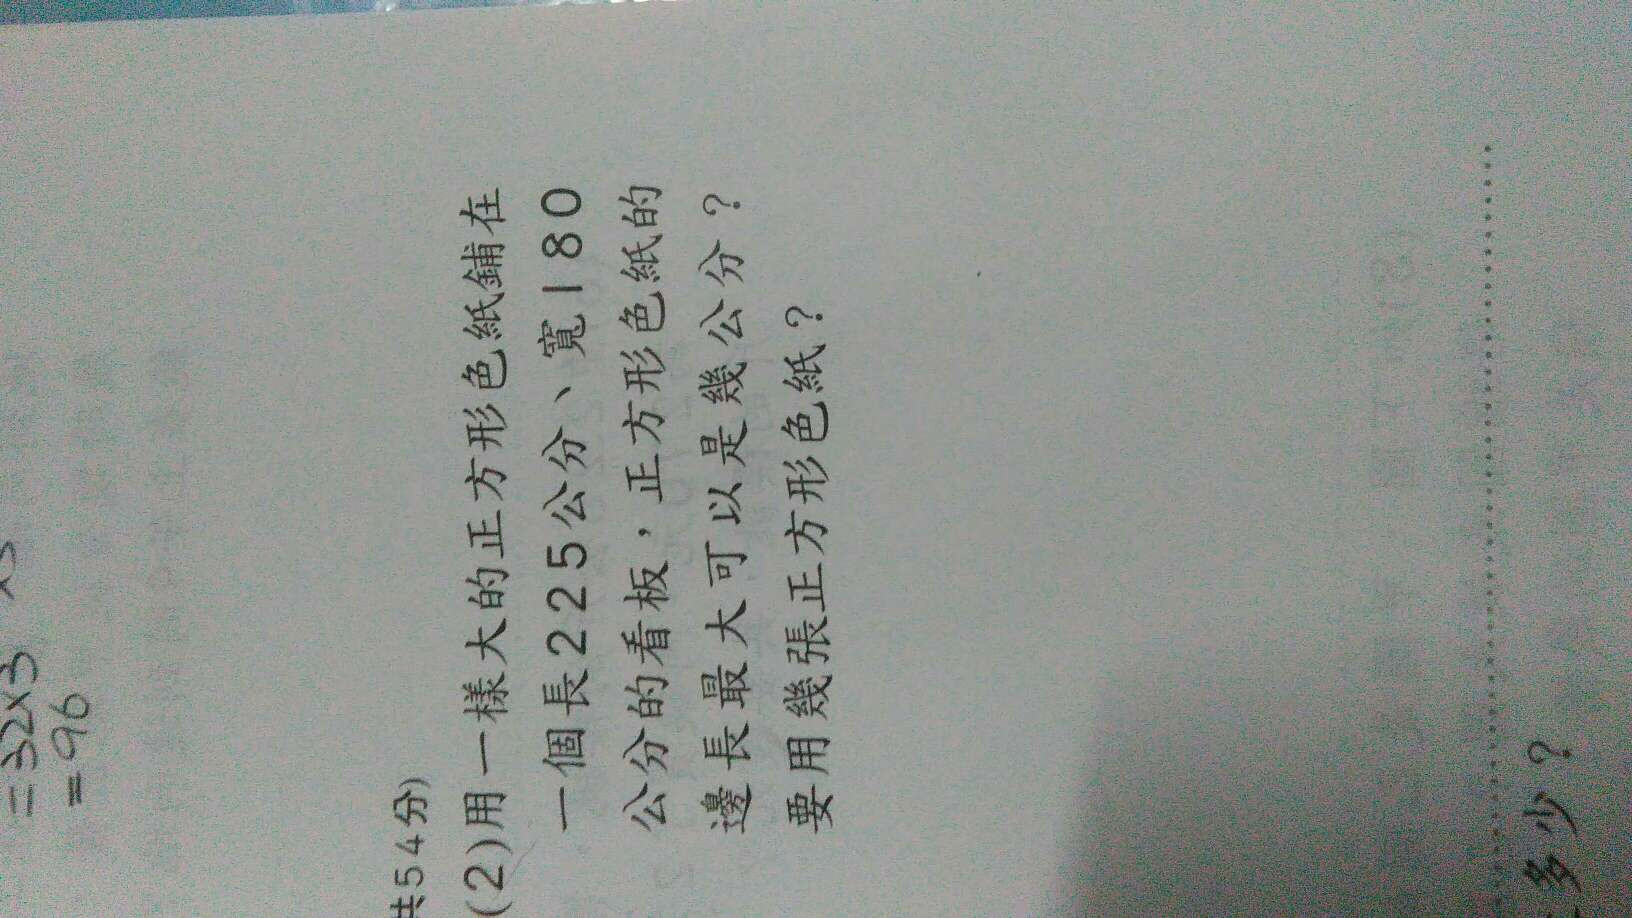 =32×3
=96
共54分)
(2)用一樣大的正方形色紙鋪在
一個長225公分、寬180
公分的看板，正方形色紙的
邊長最大可以是幾公分？
要用幾張正方形色紙？
多少？